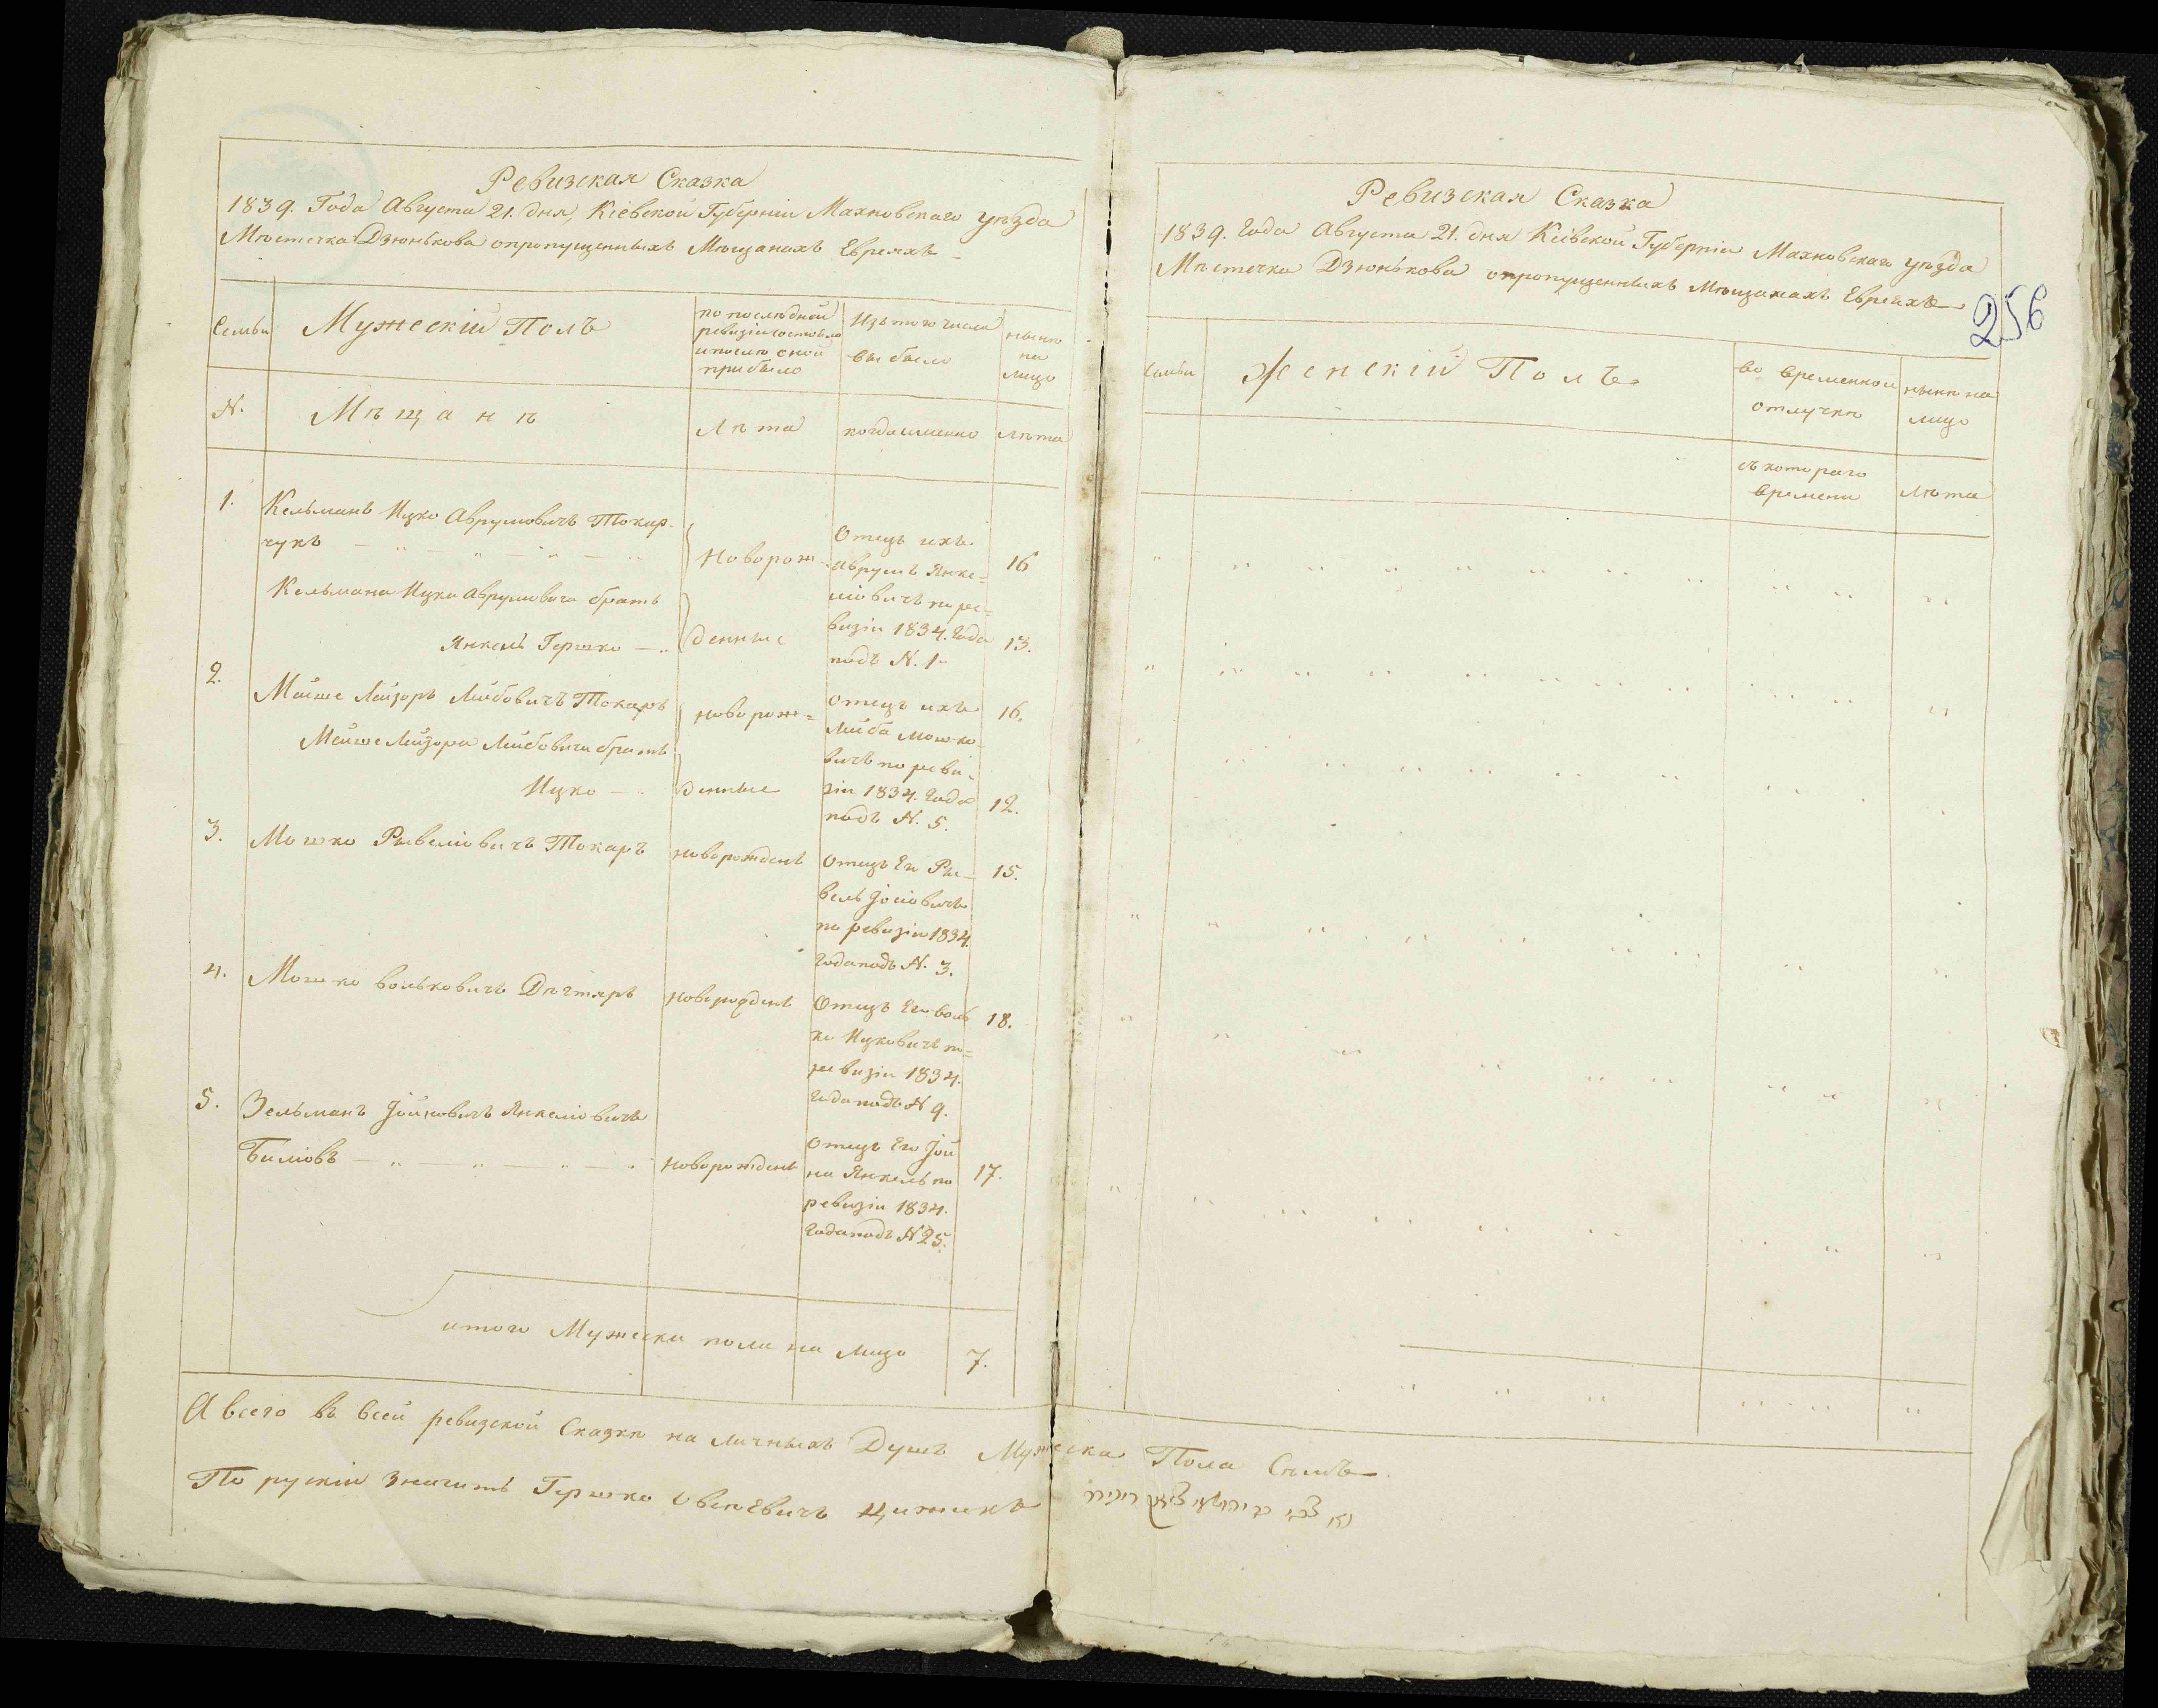 Ревизская Сказка
1839. Года Августа 21. дня, Кіевской Губерніи Махновскаго уѣзда
Мѣстечка Дзюнькова опропущенныхъ Мѣщанахъ Евреяхъ
Семьи
Мужескій Полъ
по последней
ревизіи состояло
и после оной
прибыло
Изъ того числа
выбыло
ныне
на
лицо
N.
Мѣщанѣ
Лѣта
когда именно
лѣта
1.
Кельманъ Ицко Аврумовичъ Токар-
чукъ
Кельмана Ицка Аврумовича братъ
Янкель Гершко
Новорож-
денные
Отецъ ихъ
Аврумъ Янке=
лювичъ по ре=
визіи 1834. Года
подъ N. 1.
16
13.
2.
Мойше Лейзоръ Лейбовичъ Токаръ
Мойше Лейзора Лейбовича братъ
Ицко
новорож=
денные
отецъ ихъ
Лейба Мошко-
вичъ по реви-
зіи 1834. Года
подъ N. 5.
16.
12.
3.
Мошко Рывелювичъ Токаръ
новорожденъ
Отецъ Ег Ры-
вель Іосіовичъ
по ревизіи 1834.
Года подъ N. 3.
15.
4.
Мошко Вольковичъ Дѣгтяръ
новорожденъ
Отецъ Его Воль
ко Ицковичъ по=
ревизіи 1834.
Года подъ N 9.
18.
5.
Зельманъ Іойновичъ Янкелювичъ
Билювъ
новорожденъ
Отецъ Его Іой
на Янкель по
ревизіи 1834.
Года подъ N 25.
17.
итого Мужеска пола на лицо
7.
Ревизская Сказка
1839. Года Августа 21. дня Кіевской Губерніи Махновскаго уѣзда
Мѣстечка Дзюнькова опропущенныхъ Мѣщанахъ Евреяхъ
256
Семьи
Женскій Полъ.
во временной
отлучкѣ
ныне на
лицо
съ котораго
времени
лѣта
А всего въ всей ревизской Сказкѣ на личныхъ Душъ Мужеска Пола Семъ
По рускіи значитъ Гершко Овсеевичъ Цижикъ